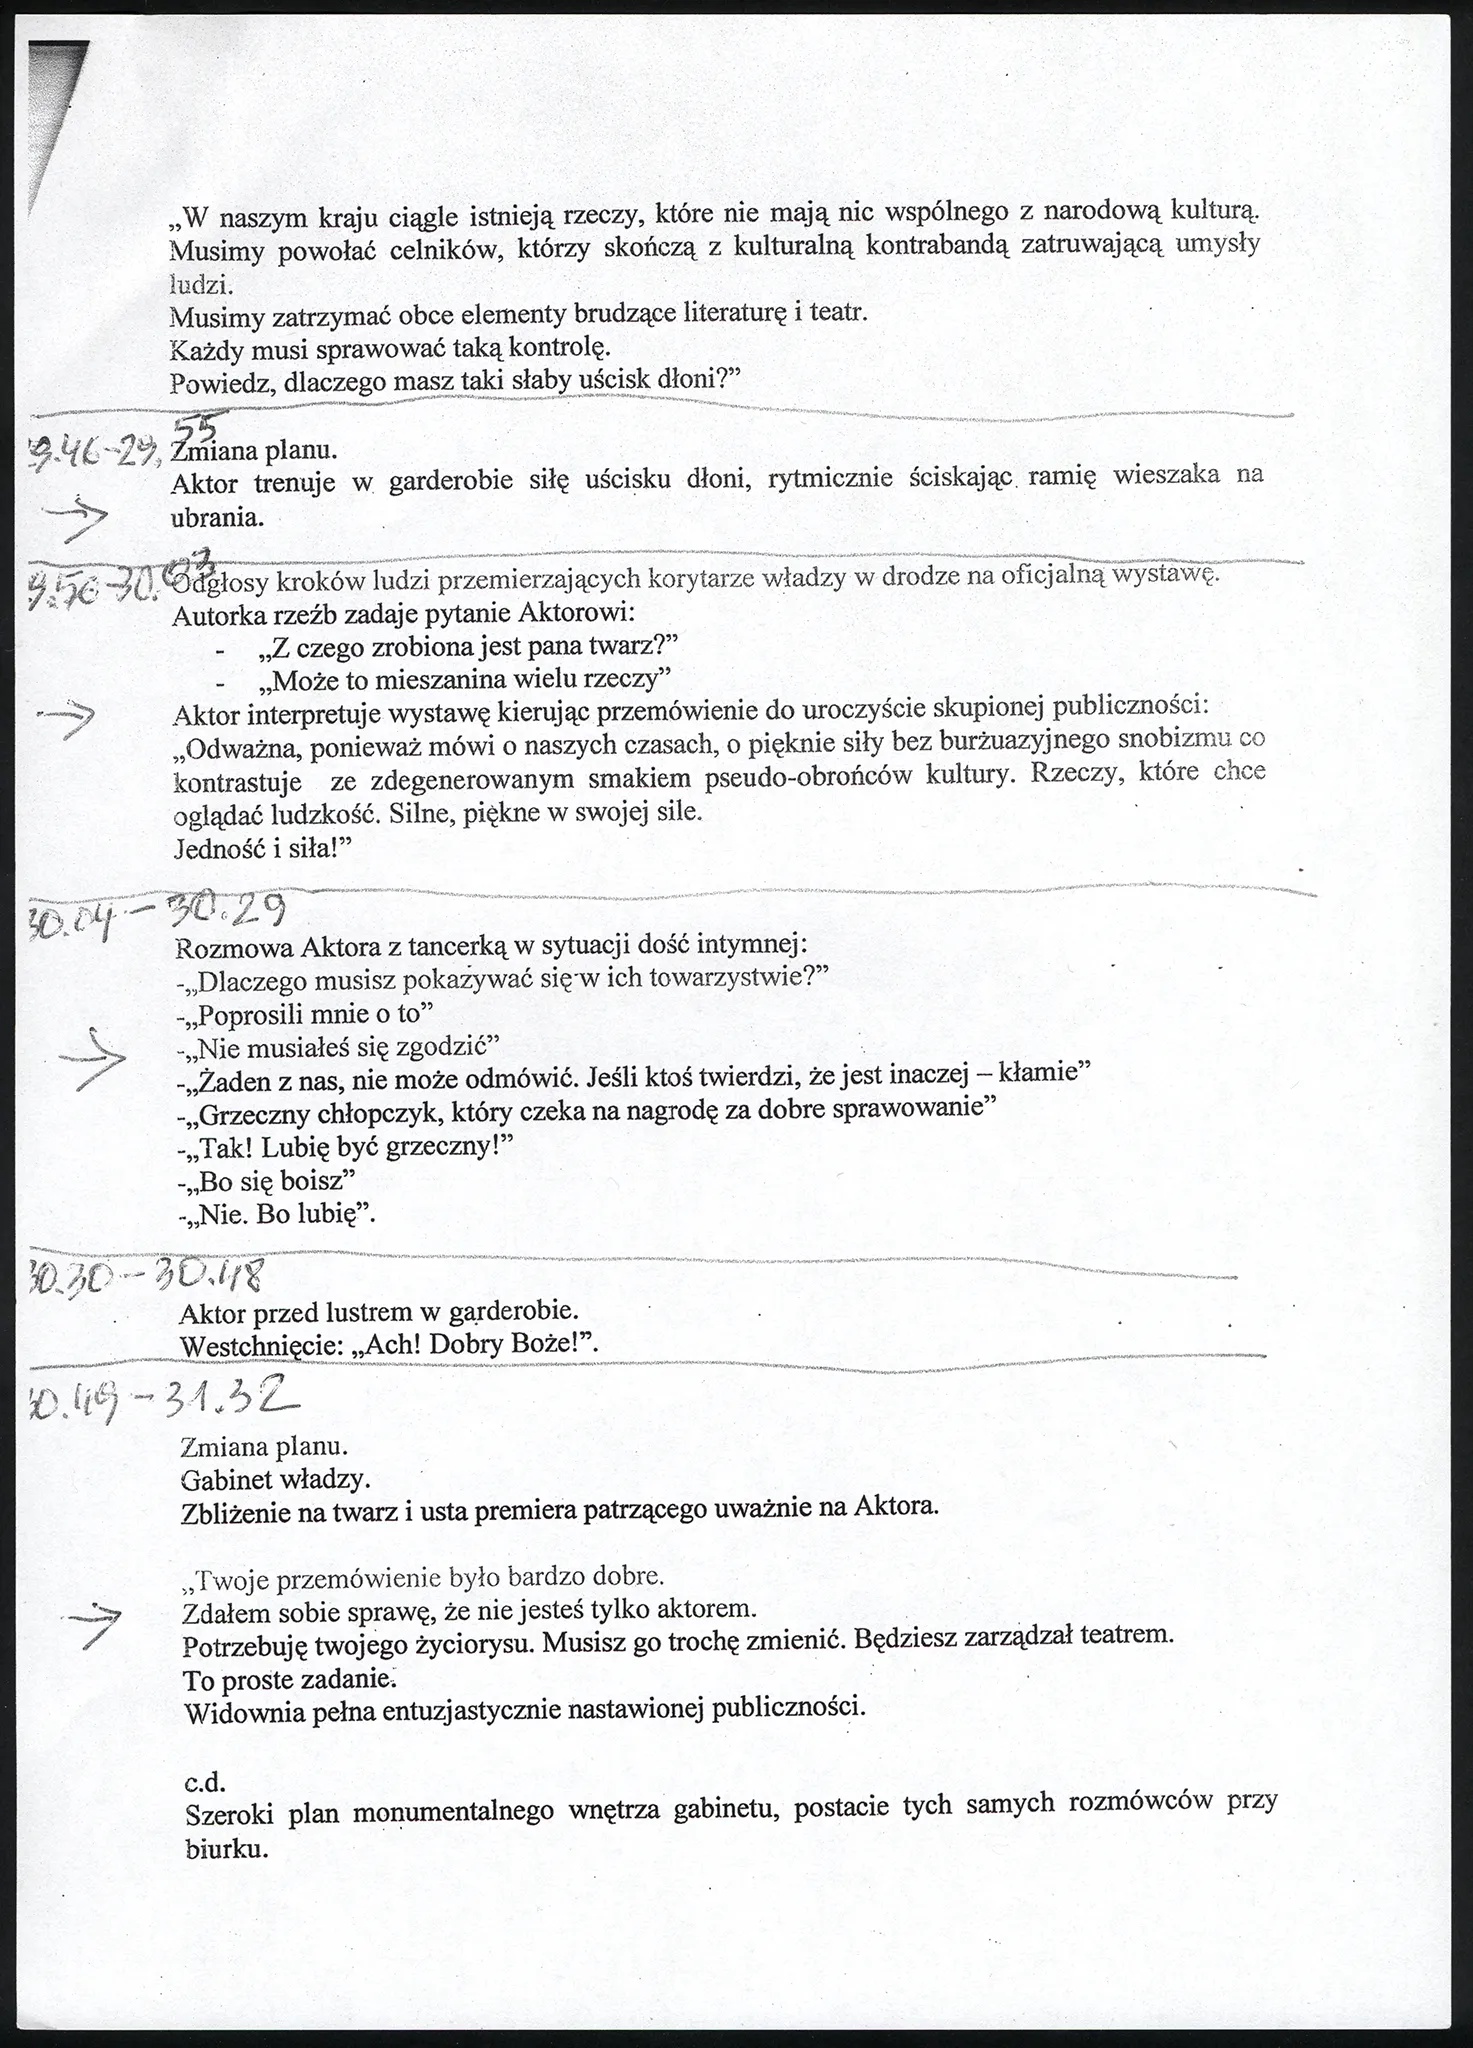 „W naszym kraju ciągle istnieją rzeczy, które nie mają nic wspólnego z narodową kulturą.
Musimy powołać celników, którzy skończą z kulturalną kontrabandą zatruwającą umysły
ludzi.
Musimy zatrzymać obce elementy brudzące literaturę i teatr.
Każdy musi sprawować taką kontrolę.
Powiedz, dlaczego masz taki słaby uścisk dłoni?”
9.46-29,55
Zmiana planu.
Aktor trenuje w garderobie siłę uścisku dłoni, rytmicznie ściskając ramię wieszaka na
ubrania.
9.56-30.03
Odgłosy kroków ludzi przemierzających korytarze władzy w drodze na oficjalną wystawę.
Autorka rzeźb zadaje pytanie Aktorowi:
- „Z czego zrobiona jest pana twarz?”
- „Może to mieszanina wielu rzeczy”
Aktor interpretuje wystawę kierując przemówienie do uroczyście skupionej publiczności:
„Odważna, ponieważ mówi o naszych czasach, o pięknie siły bez burżuazyjnego snobizmu co
kontrastuje ze zdegenerowanym smakiem pseudo-obrońców kultury. Rzeczy, które chce
oglądać ludzkość. Silne, piękne w swojej sile.
Jedność i siła!”
30.04 – 30.29
Rozmowa Aktora z tancerką w sytuacji dość intymnej:
-„Dlaczego musisz pokazywać się w ich towarzystwie?”
-„Poprosili mnie o to”
-„Nie musiałeś się zgodzić”
-„Żaden z nas, nie może odmówić. Jeśli ktoś twierdzi, że jest inaczej – kłamie”
-„Grzeczny chłopczyk, który czeka na nagrodę za dobre sprawowanie”
-„Tak! Lubię być grzeczny!”
-„Bo się boisz”
-„Nie. Bo lubię”.
30.30 – 30.48
Aktor przed lustrem w garderobie.
Westchnięcie: „Ach! Dobry Boże!”.
30.49 – 31.32
Zmiana planu.
Gabinet władzy.
Zbliżenie na twarz i usta premiera patrzącego uważnie na Aktora.
„Twoje przemówienie było bardzo dobre.
Zdałem sobie sprawę, że nie jesteś tylko aktorem.
Potrzebuję twojego życiorysu. Musisz go trochę zmienić. Będziesz zarządzał teatrem.
To proste zadanie.
Widownia pełna entuzjastycznie nastawionej publiczności.
c.d.
Szeroki plan monumentalnego wnętrza gabinetu, postacie tych samych rozmówców przy
biurku.